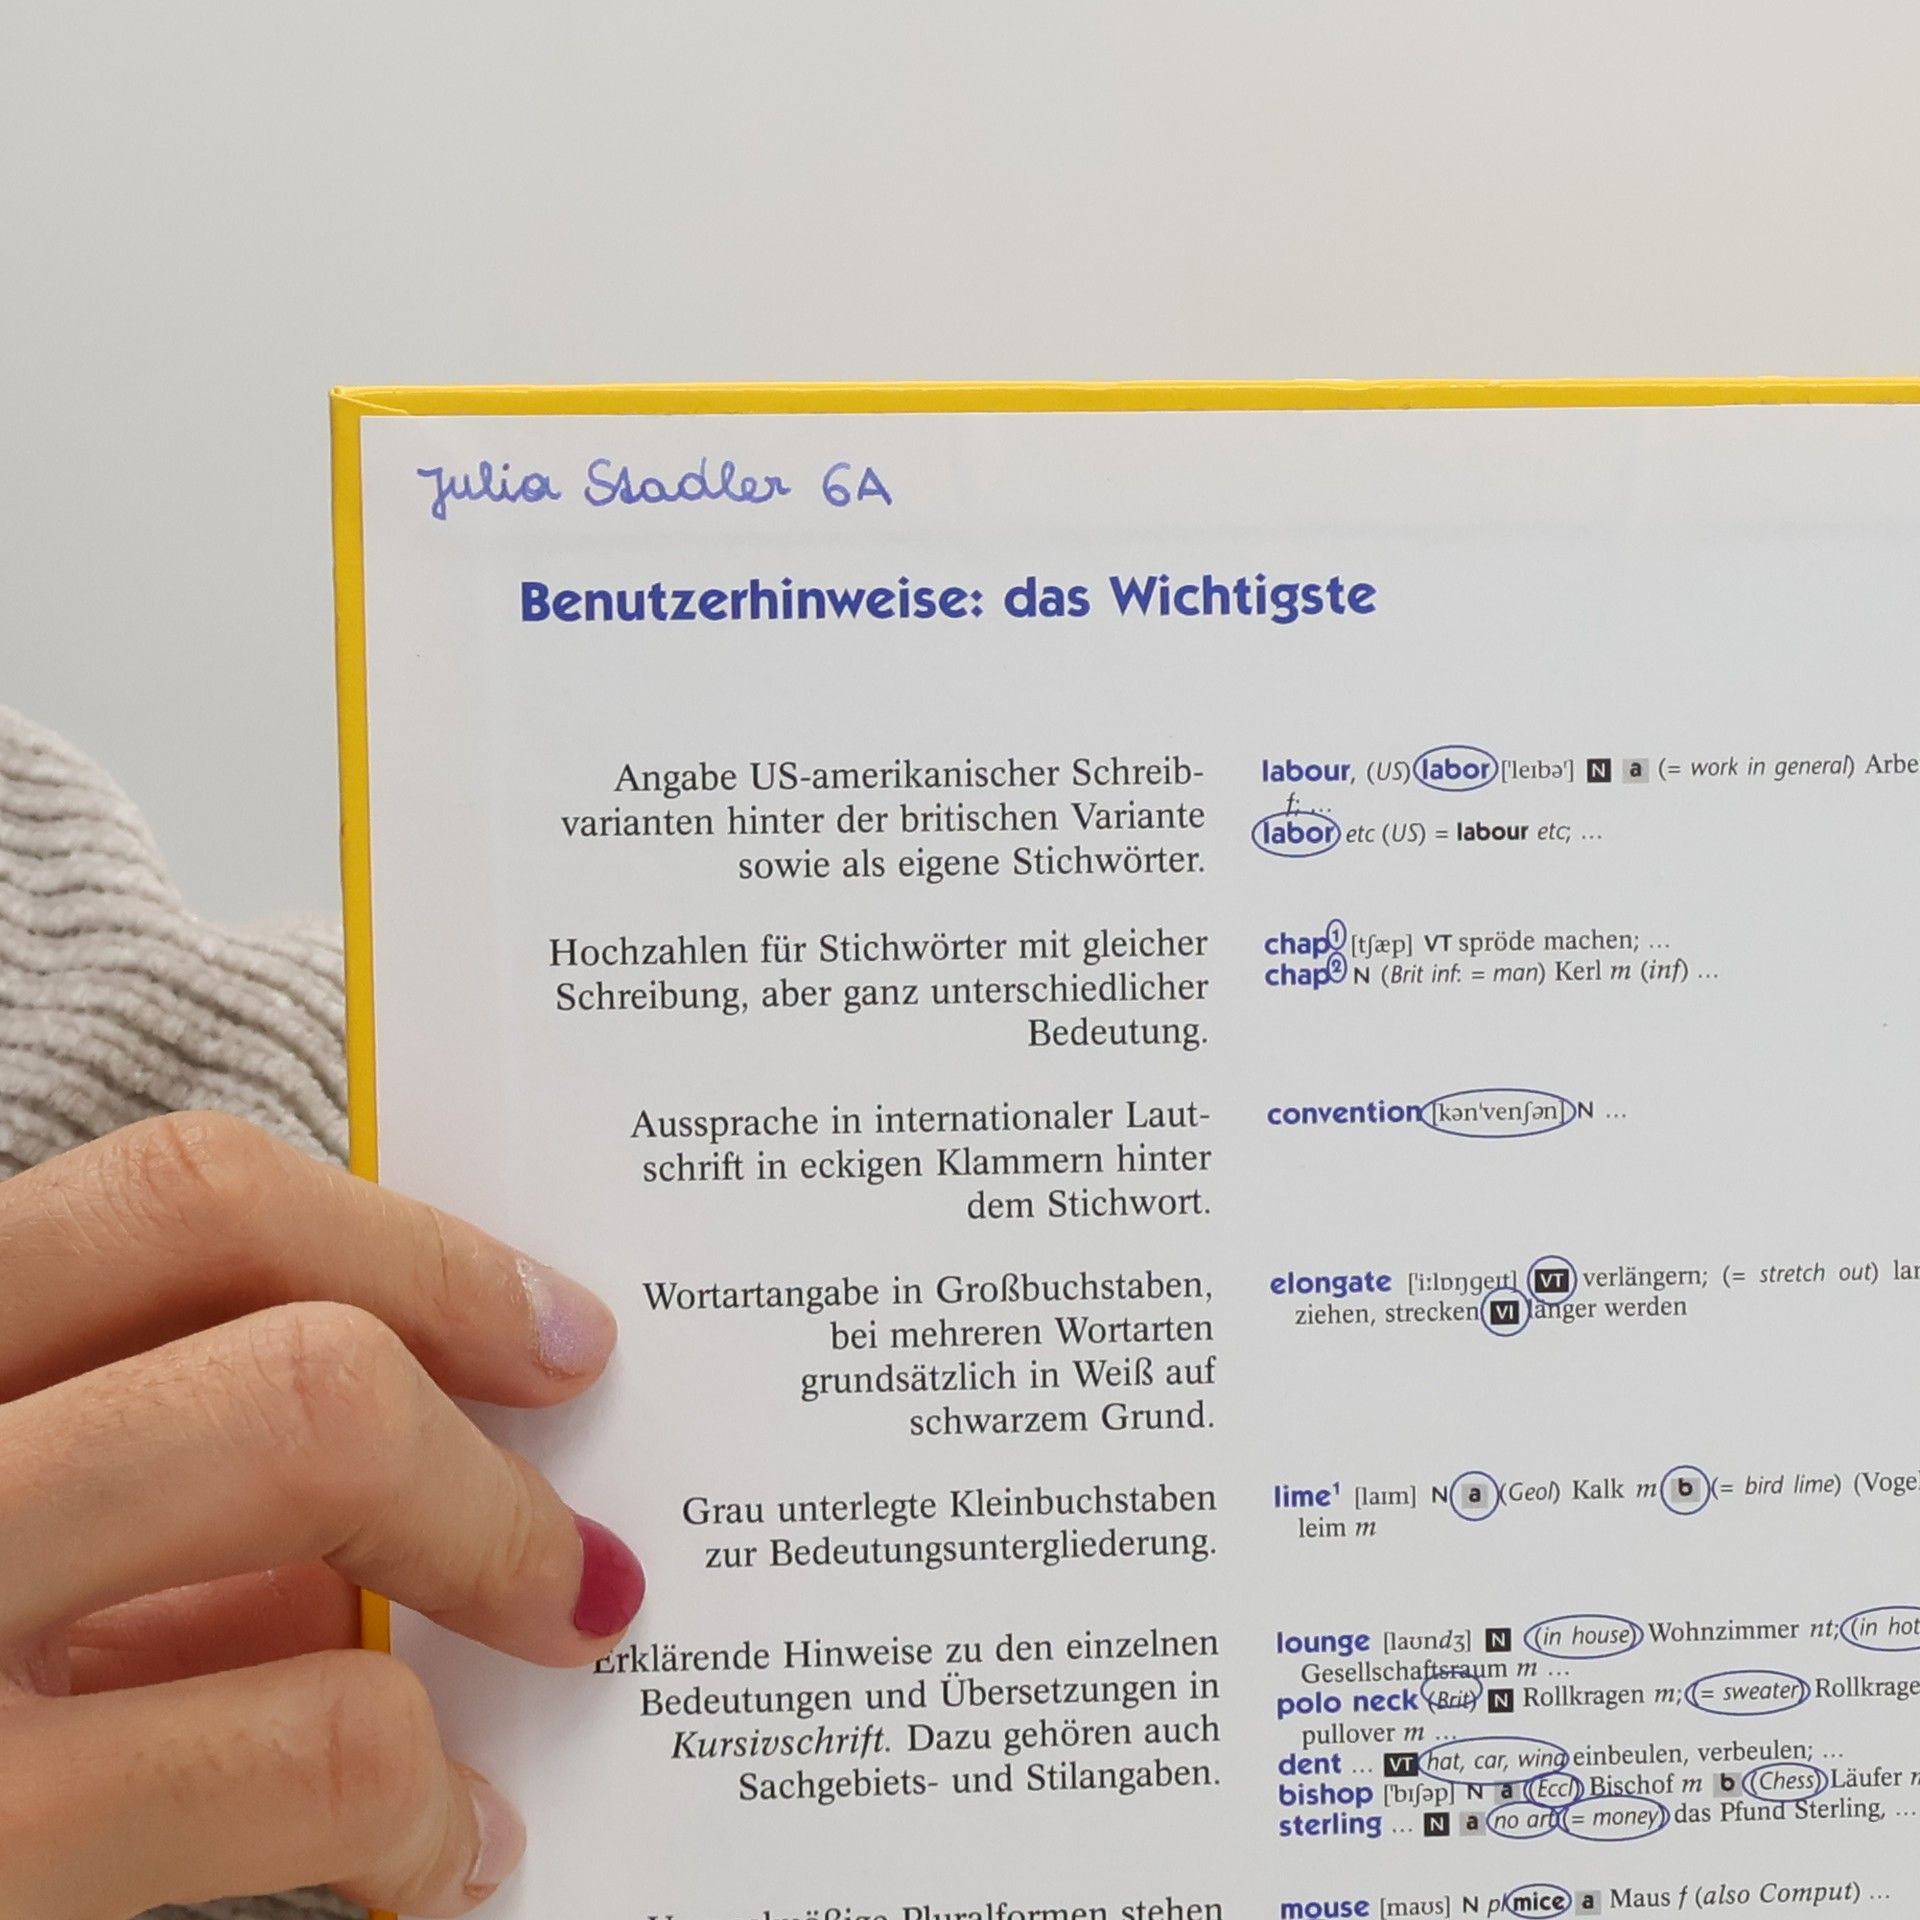 Julia Stadler 6A
Benutzerhinweise: das Wichtigste
Angabe US-amerikanischer Schreib-
varianten hinter der britischen Variante
sowie als eigene Stichwörter.
labour, (US) labor ['leɪbəʳ] N a (= work in general) Arbe
f; …
labor etc (US) = labour etc; …
Hochzahlen für Stichwörter mit gleicher
Schreibung, aber ganz unterschiedlicher
Bedeutung.
chap¹ [tʃæp] VT spröde machen; …
chap² N (Brit inf: = man) Kerl m (inf) …
Aussprache in internationaler Laut-
schrift in eckigen Klammern hinter
dem Stichwort.
convention [kən'venʃən] N …
Wortartangabe in Großbuchstaben,
bei mehreren Wortarten
grundsätzlich in Weiß auf
schwarzem Grund.
elongate ['iːlɒŋgeɪt] VT verlängern; (= stretch out) lan
ziehen, strecken VI länger werden
Grau unterlegte Kleinbuchstaben
zur Bedeutungsuntergliederung.
lime¹ [laɪm] N a (Geol) Kalk m b (= bird lime) (Vogel
leim m
Erklärende Hinweise zu den einzelnen
Bedeutungen und Übersetzungen in
Kursivschrift. Dazu gehören auch
Sachgebiets- und Stilangaben.
lounge [laʊndʒ] N (in house) Wohnzimmer nt; (in hot
Gesellschaftsraum m …
polo neck (Brit) N Rollkragen m; (= sweater) Rollkrage
pullover m …
dent … VT hat, car, wing einbeulen, verbeulen; …
bishop ['bɪʃəp] N a (Eccl) Bischof m b (Chess) Läufer m
sterling … N a no art (= money) das Pfund Sterling, …
Pluralformen stehen
mouse [maʊs] N pl mice a Maus f (also Comput) …